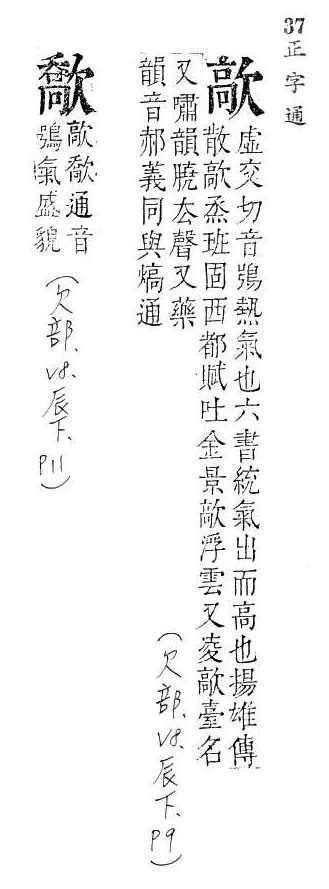 37 正字通
歊
虛交切音鴞熱氣也六書統氣出而高也揚雄傳
散歊烝班固西都賦吐金景歊浮雲又凌歊臺名
又嘯韻曉去聲又藥
韻音郝義同與熇通
(欠部.V8.辰下.P9)
歊通音
鴞氣盛貌
(欠部.V8.辰下.P11)